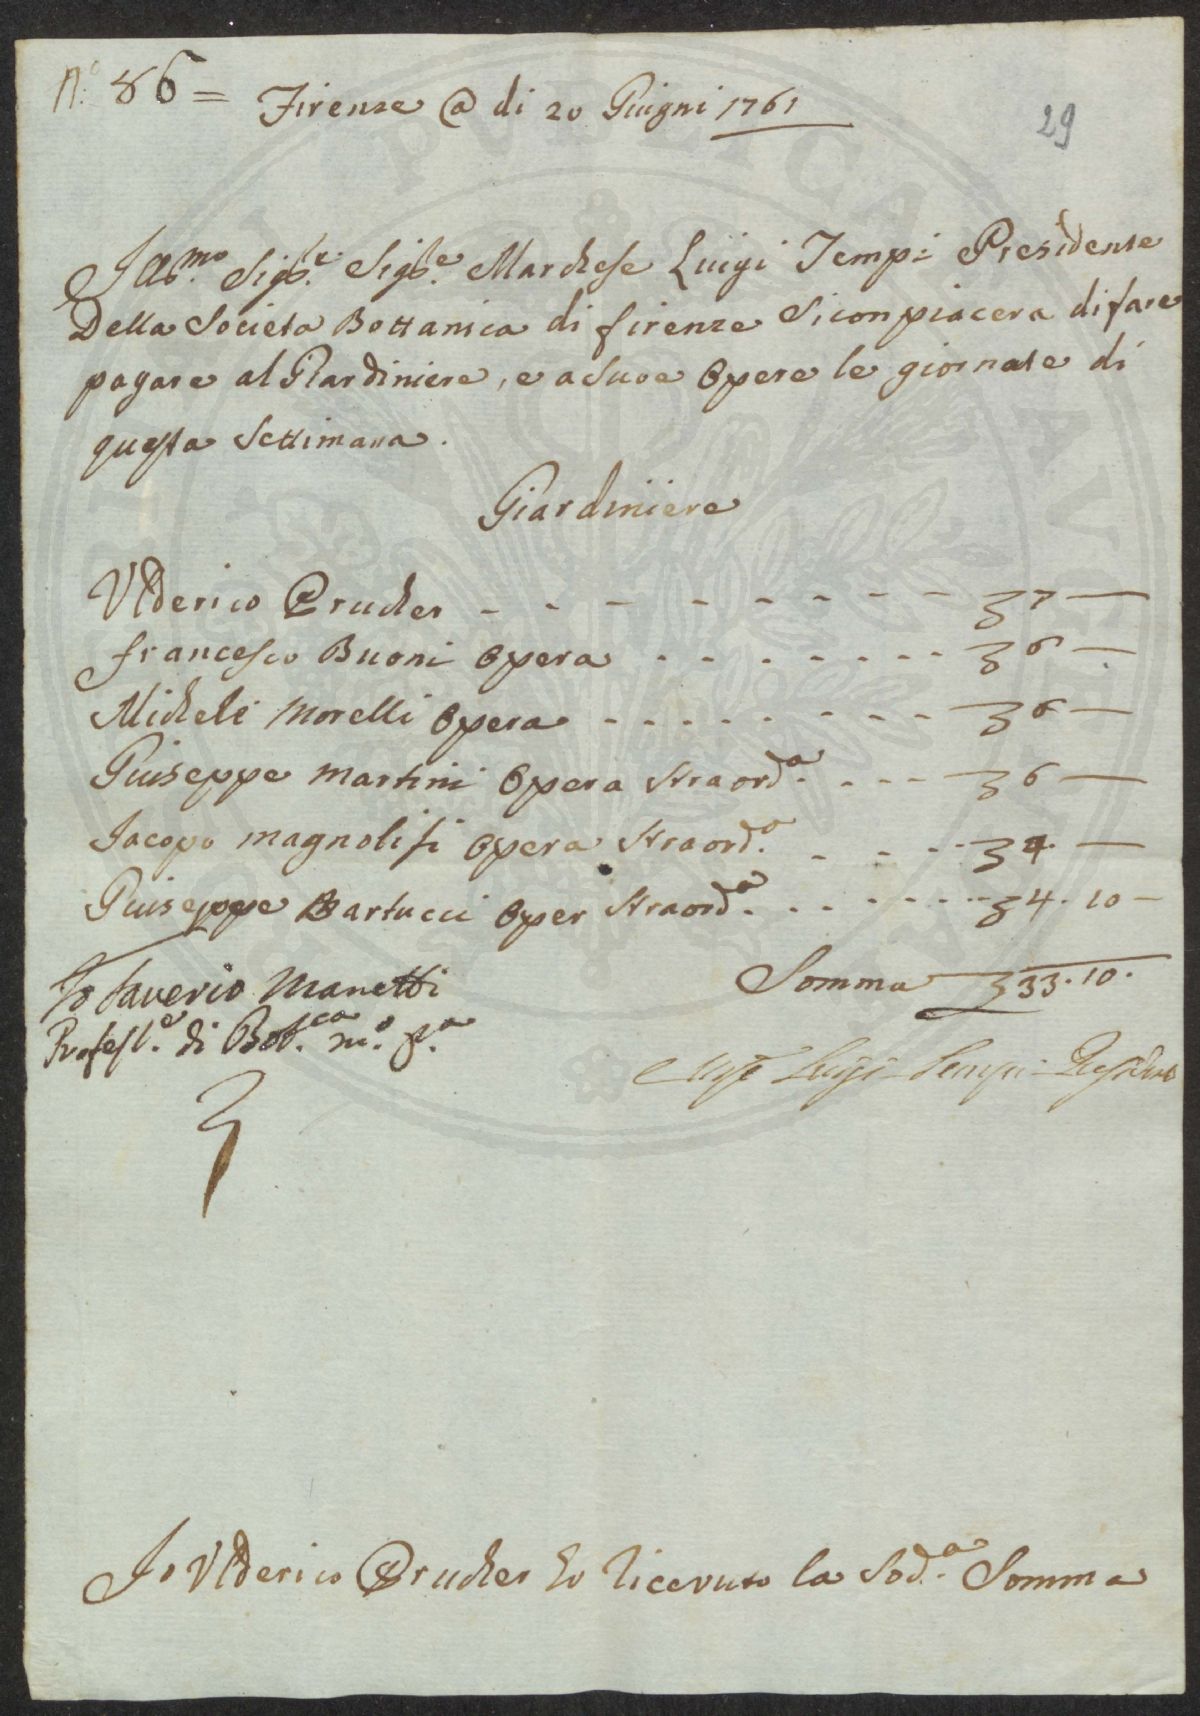 N.° 86 =
Firenze @ di 20 Giugni 1761
29
Ill.mo Sig.re Sig.re Marchese Luigi Tempi Presidente
Della Societa Bottanica di firenze Si conpiacera di fare
pagare al Giardiniere, e a Sue Opere le giornate di
questa Settimana.
Giardiniere
Ulderico Prucher - - - - - - - - - 7 —
francesco Buoni Opera - - - - - - - - 6 —
Michele Morelli Opera - - - - - - - - 6 —
Giuseppe Martini Opera straord.a - - - 6 —
Jacopo Magnolifi Opera straord.a - - - 4 —
Giuseppe Bartucci Oper straord.a - - - - - - 4.10 —
Somma 33.10.
Io Saverio Manetti
Profess.e di Bot.ca m.o p.a
Luigi Tempi Presidente
Io Ulderico Prucher ho ricevuto la Sod.a Somma